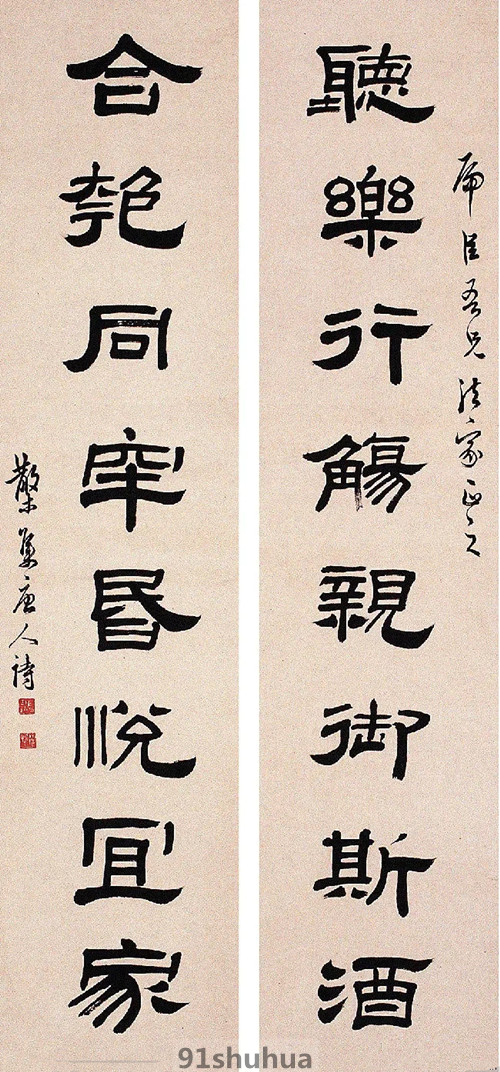 虎臣吾兄法家正之
聽樂行觴親御斯酒
合匏同牢昬悅宜家
集唐人詩
91shuhua